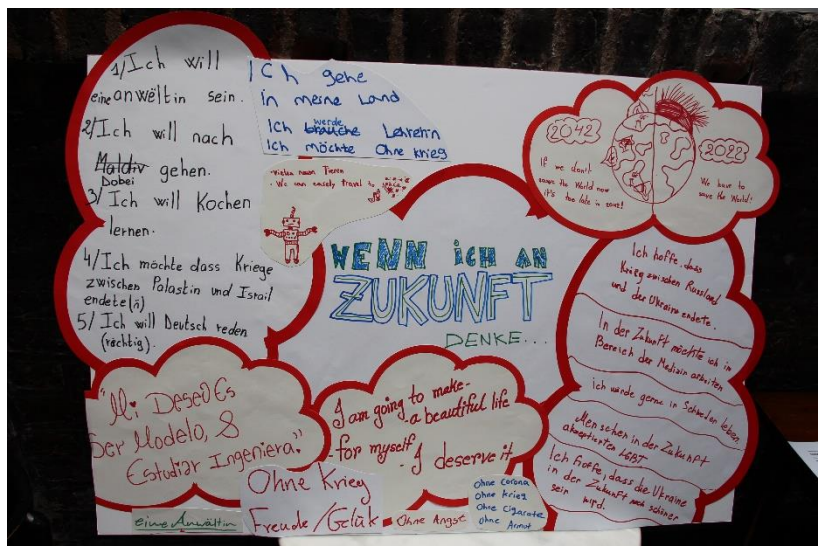 1/Ich will
eine anwältin sein.
2/Ich will nach
Maldiv gehen.
Dobei
3/ Ich will Kochen
lernen.
4/ Ich möchte dass Kriege
zwischen Palastin und Israil
endete(n)
5/ Ich will Deutsch reden
(rächtig).
Ich gehe
in meine Land
Ich brauche werde Lehrerin
Ich möchte Ohne krieg
vielen neuen Tieren
. We can easely travel to
2042
If we don't
save the World now
it's too late in 2042!
2022
We have to
save the World!
WENN iCH AN
ZUKUNFT
DENKE...
Ich hoffe, dass
Krieg zwischen Russland
und der Ukraine endete.
In der Zukunft möchte ich in
Bereich der Medizin arbeiten
ich würde gerne in Schweden leben
Menschen in der Zukunft
akzeptierten LGBT
Ich hoffe, dass die Ukraine
in der Zukunft noch schöner
sein wird.
"Mi Deseo Es
Ser Modelo, &
Estudiar Ingeniera."
I am going to make
a beautiful life
for myself
- I deserve it
Ohne Krieg
Freude/Gelük
eine Anwältin
Ohne Angst
Ohne Corona
Ohne Krieg
Ohne Cigarate
Ohne Armot